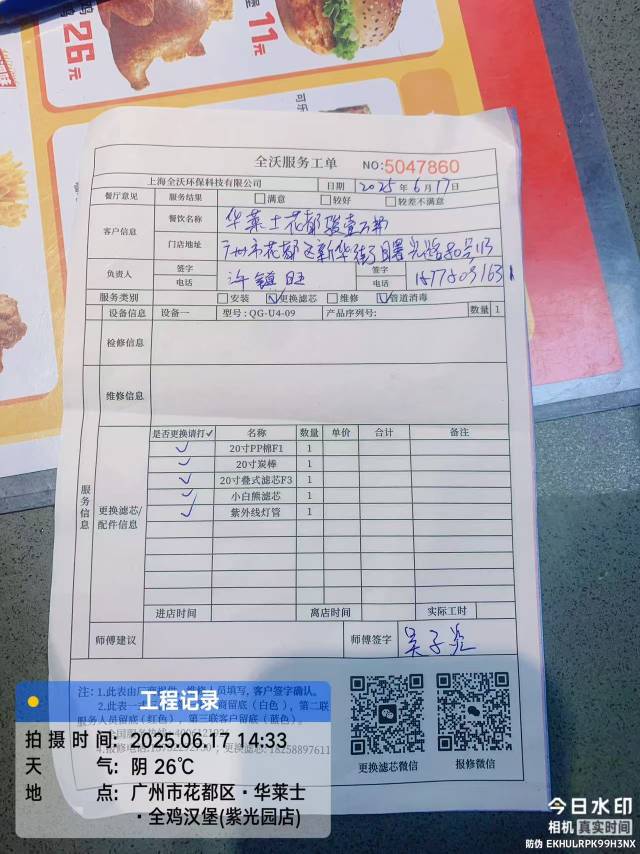 26元
11元
全沃服务工单 NO:5047860
上海全沃环保科技有限公司 日期 2025 年 6 月 17 日
餐厅意见 服务结果 满意 较好 较差不满意
客户信息 餐饮名称 华莱士花都
门店地址 广州市花都区新华街
负责人 签字 许镇旺 签字
电话 电话
服务类别 安装 更换滤芯 维修 管道消毒
设备信息 设备一 型号: QG-U4-09 产品序列号: 数量 1
检修信息
服务信息
维修信息
更换滤芯/配件信息
是否更换请打✓ 名称 数量 单价 合计 备注
✓ 20寸PP棉F1 1
✓ 20寸炭棒 1
✓ 20寸叠式滤芯F3 1
✓ 小白熊滤芯 1
✓ 紫外线灯管 1
进店时间 离店时间 实际工时
师傅建议 师傅签字 吴子
注: 1.此表由 人员填写, 客户签字确认。
2.此表一 留底(白色), 第二联
服务人员留底(红色), 第三联客户留底(蓝色)。
更换滤芯: 18258897611
更换滤芯微信 报修微信
工程记录
拍摄时间: 2025.06.17 14:33
天 气: 阴 26℃
地 点: 广州市花都区·华莱士
·全鸡汉堡(紫光园店)
今日水印
相机 真实时间
防伪 EKHULRPK99H3NX